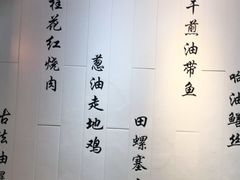 干煎油带鱼
桂花红烧肉
葱油走地鸡
田螺塞
油鳝丝
古法油